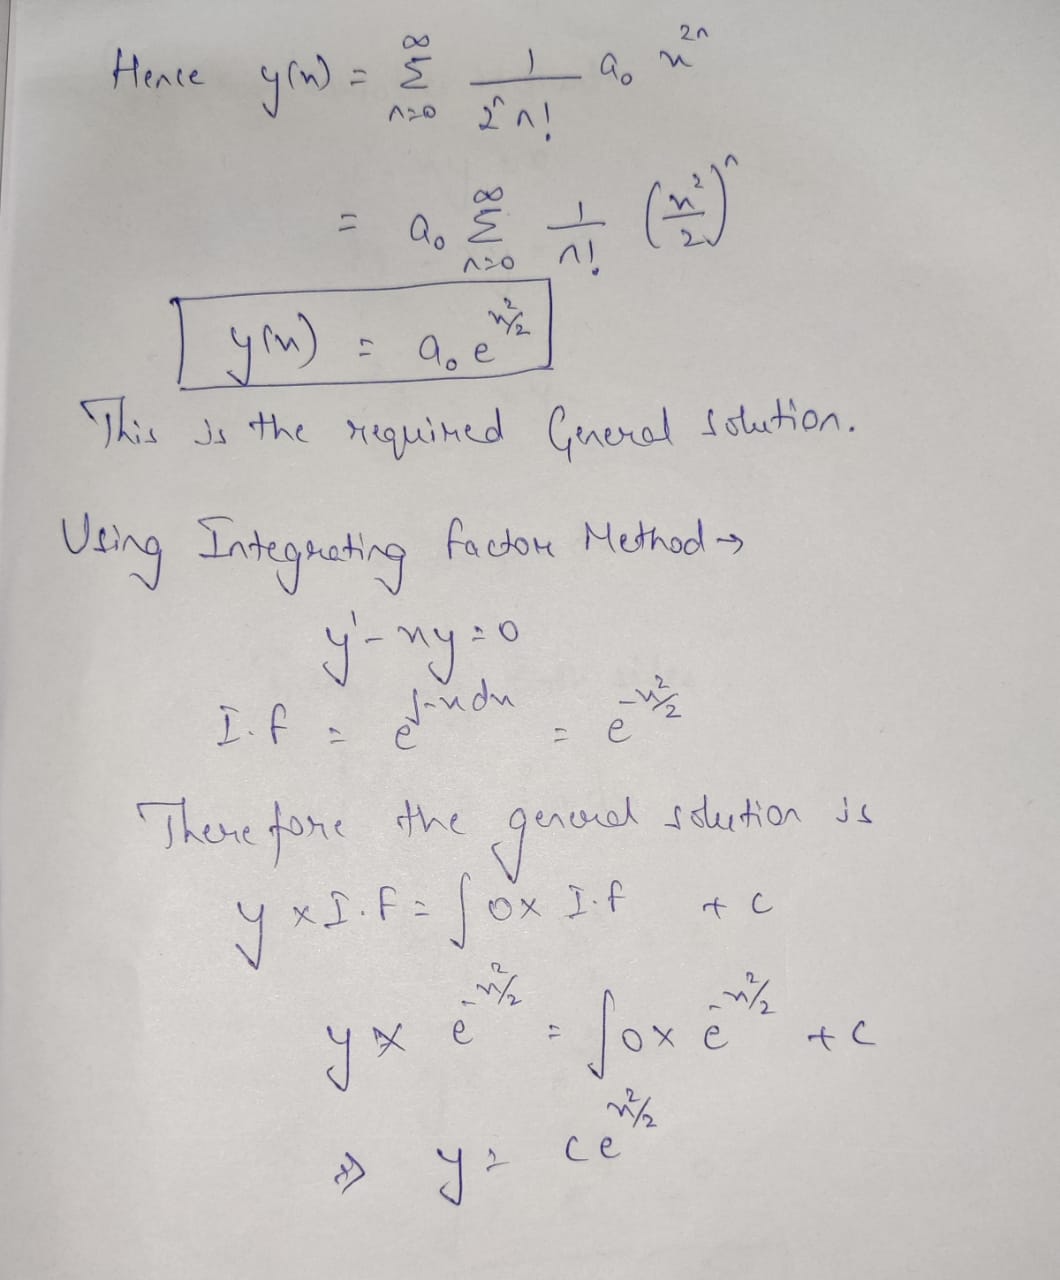 Hence y(x) = ∑_{n=0}^{∞} 1/(2^n n!) a₀ x^{2n}
= a₀ ∑_{n=0}^{∞} 1/n! (x²/2)^n
y(x) = a₀ e^{x²/2}
This is the required General solution.
Using Integrating factor Method →
y' - xy = 0
I.f = e^{∫-x dx} = e^{-x²/2}
Therefore the general solution is
y × I.f = ∫0 × I.f + c
y × e^{-x²/2} = ∫0 × e^{-x²/2} + c
⇒ y = ce^{x²/2}